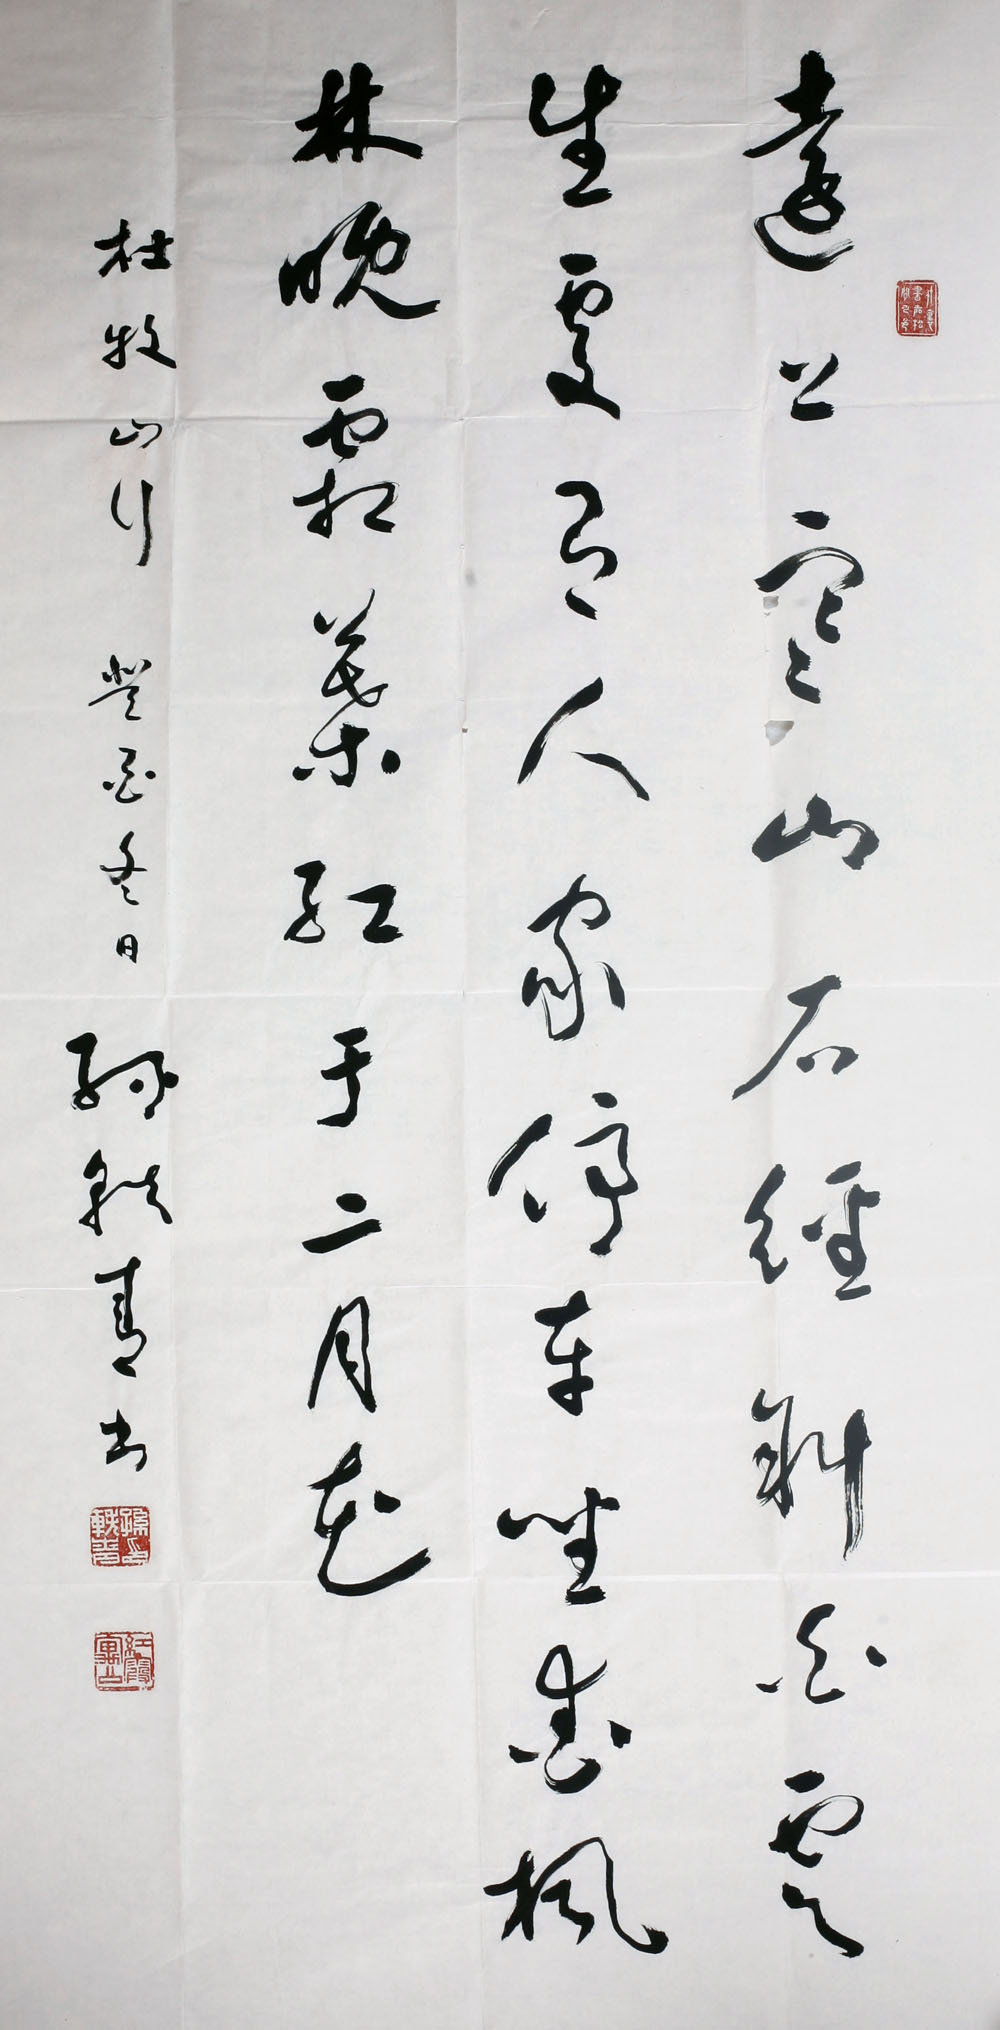 遠上寒山石徑斜白雲
生處有人家停車坐愛楓
林晚霜葉紅于二月花
杜牧山行 癸酉冬日 孫軼青書
孫軼青印
紅霞寓公